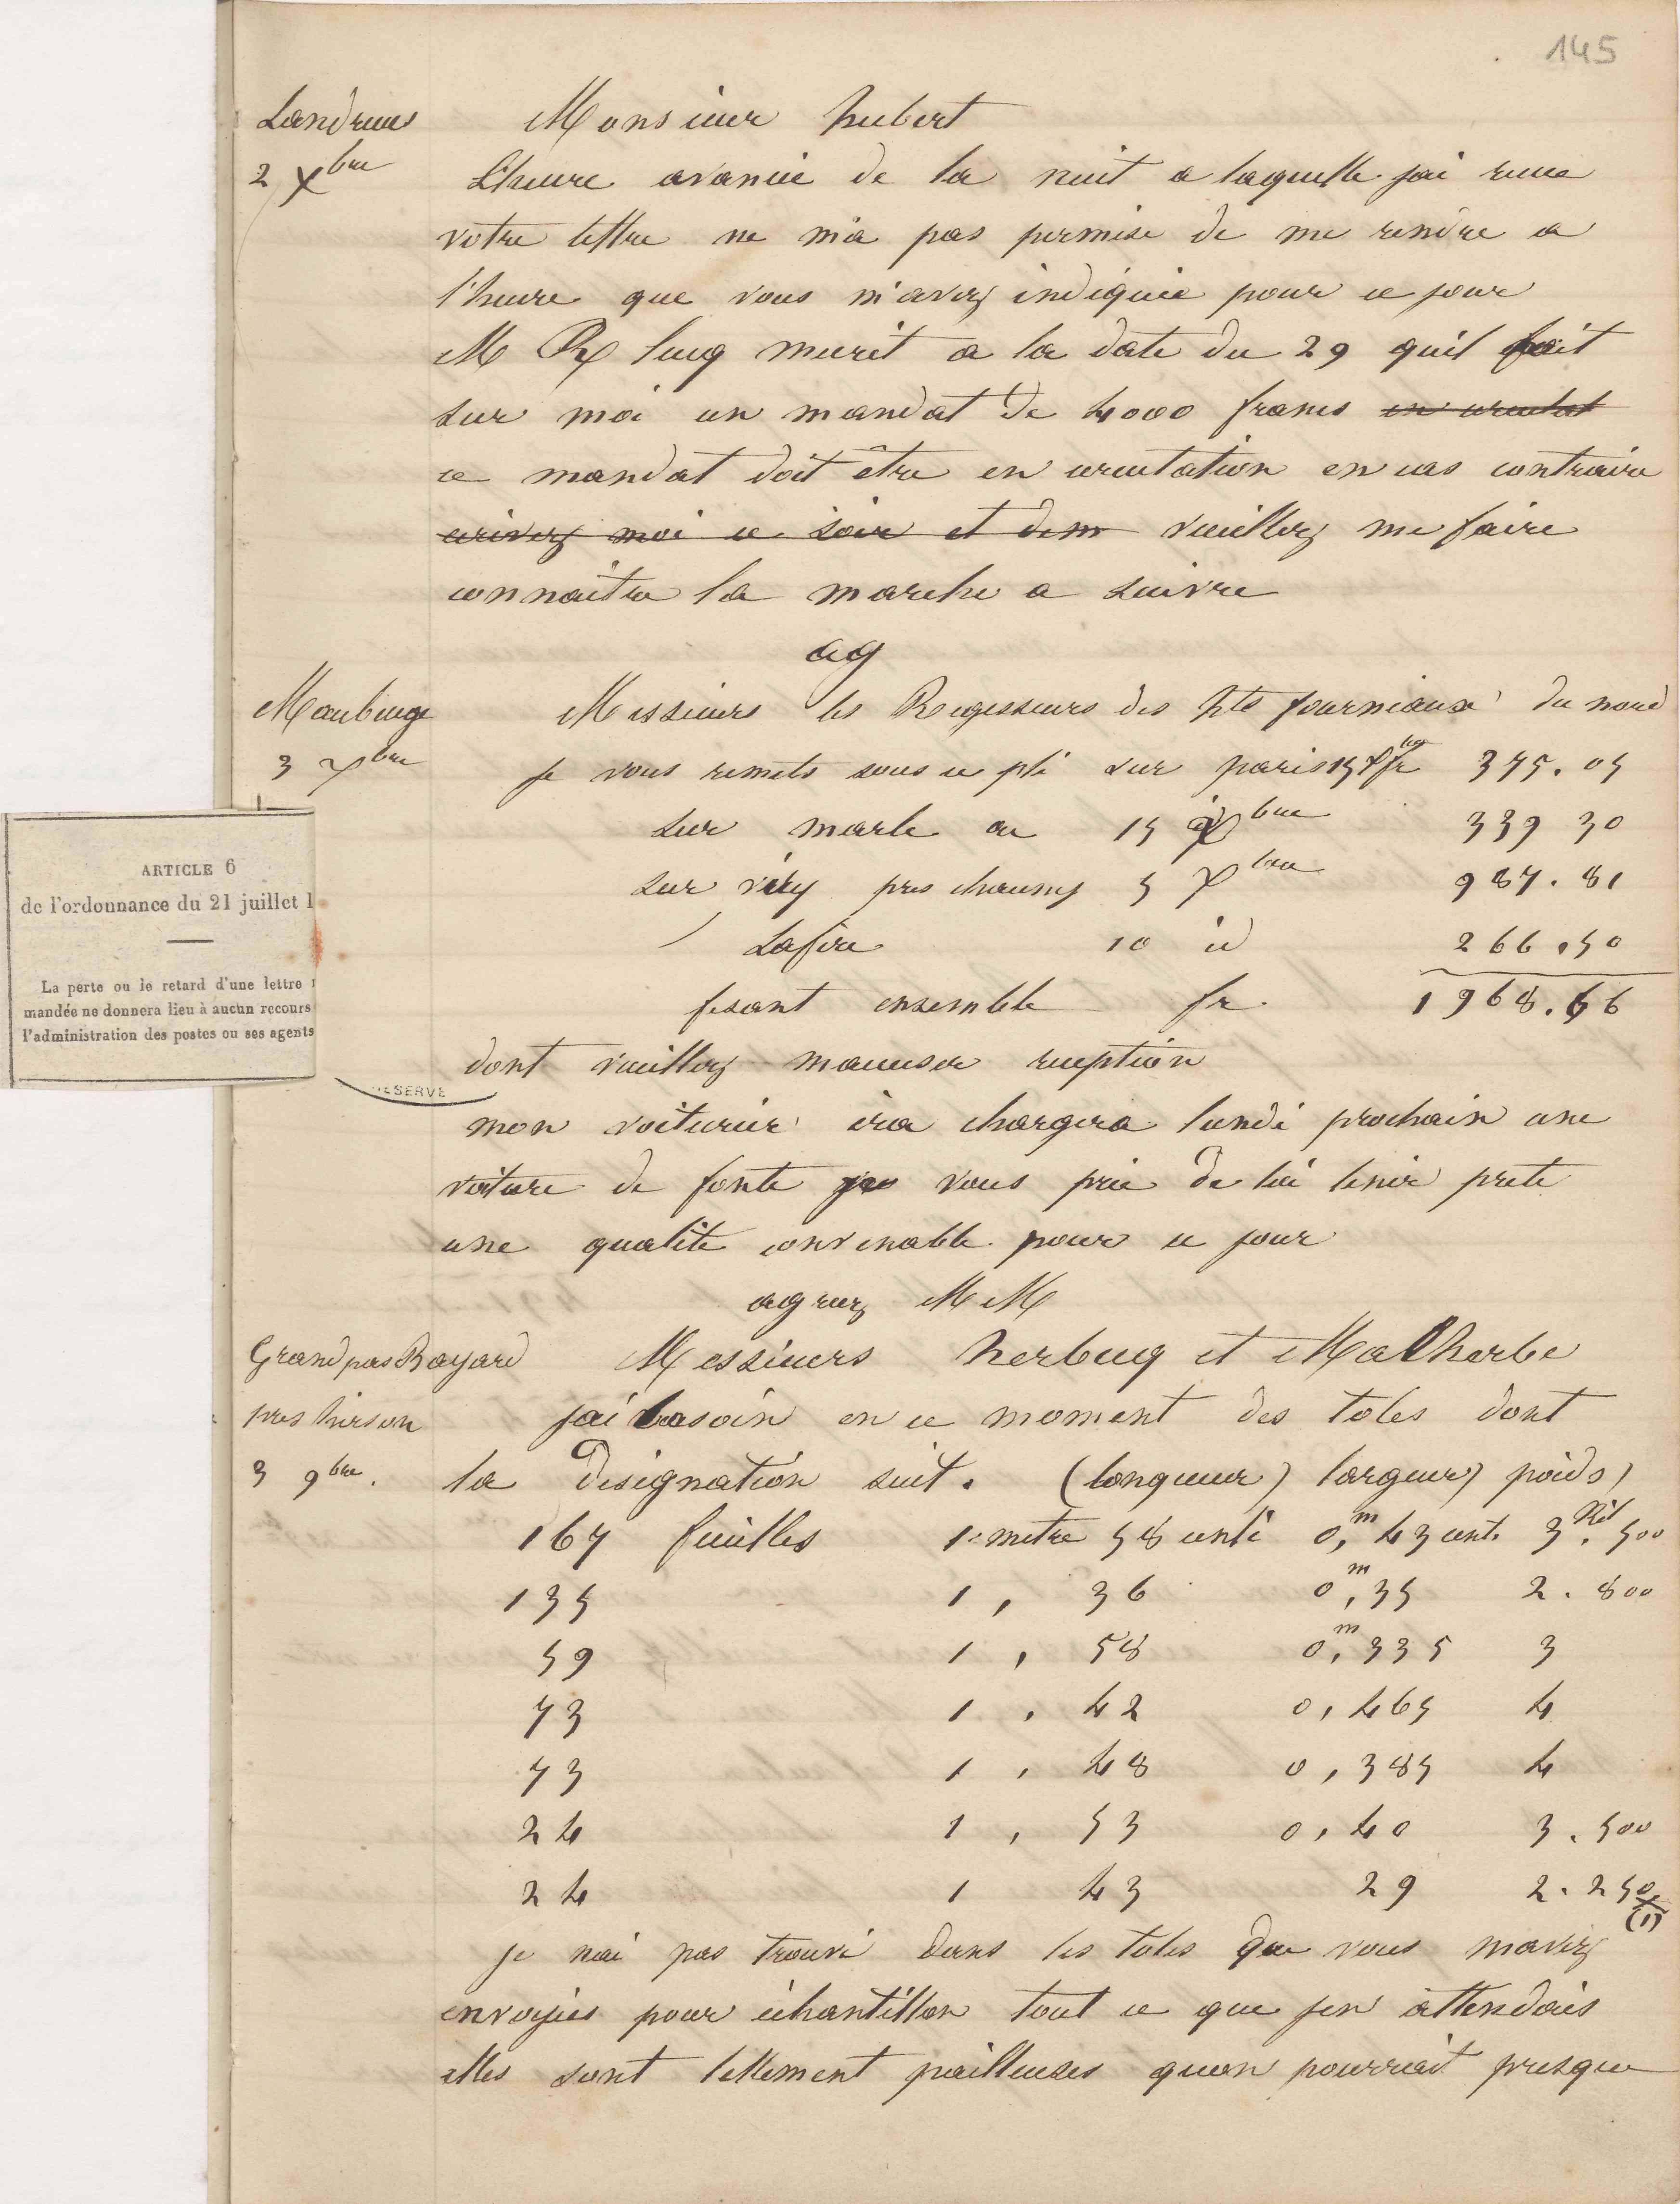 145
Landrecies
Monsieur hubert
2 Xbre
L'heure avancée de la nuit a laquelle jai recue
votre lettre ne m'a pas permise de me rendre a
l'heure que vous m'avez indiquée pour ce jour
M mecrit a la date du 29 quil fait
sur moi un mandat de 4000 francs
ce mandat doit être en circulation en cas contraire
ecrivez moi ce soir et dem veuillez me faire
connaitre la marche a suivre
ag
Maubeuge
Messieurs les Regisseurs des hts fourneaux du nord
3 Xbre
je vous remets sous ce pli sur paris 15 Xbre fr 375.05
sur marle au 15 Xbre 339 30
sur viry pres chauny 5 Xbre 987.81
Lafere 10 id 266.50
fesant ensemble fr. 1968.66
dont veuillez maccuser reception
mon voiturier ira chargera lundi prochain une
voiture de fonte je vous prie de lui tenir prete
une qualite convenable pour ce jour
agreez MM
Grand pas Bayard
Messieurs herbecq et Malherbe
pres hirson
jai besoin en ce moment des toles dont
3 9bre.
la designation suit. (longueur) largeur) poids)
167 feuilles 1 metre 58 centi 0,m 43 cent. 3 Kil. 500
135 1, 36 0,m35 2.800
59 1, 58 0,m335 3
73 1, 42 0,465 4
73 1, 48 0,385 4
24 1, 53 0,40 3.500
24 1 43 29 2.250
(1)
je nai pas trouvé dans les toles que vous mavez
envoyées pour echantillon tout ce que jen attendais
elles sont tellement pailleuses quon pourrait presque
ARTICLE 6
de l'ordonnance du 21 juillet 1
La perte ou le retard d'une lettre
mandée ne donnera lieu à aucun recours
l'administration des postes ou ses agents
RESERVE